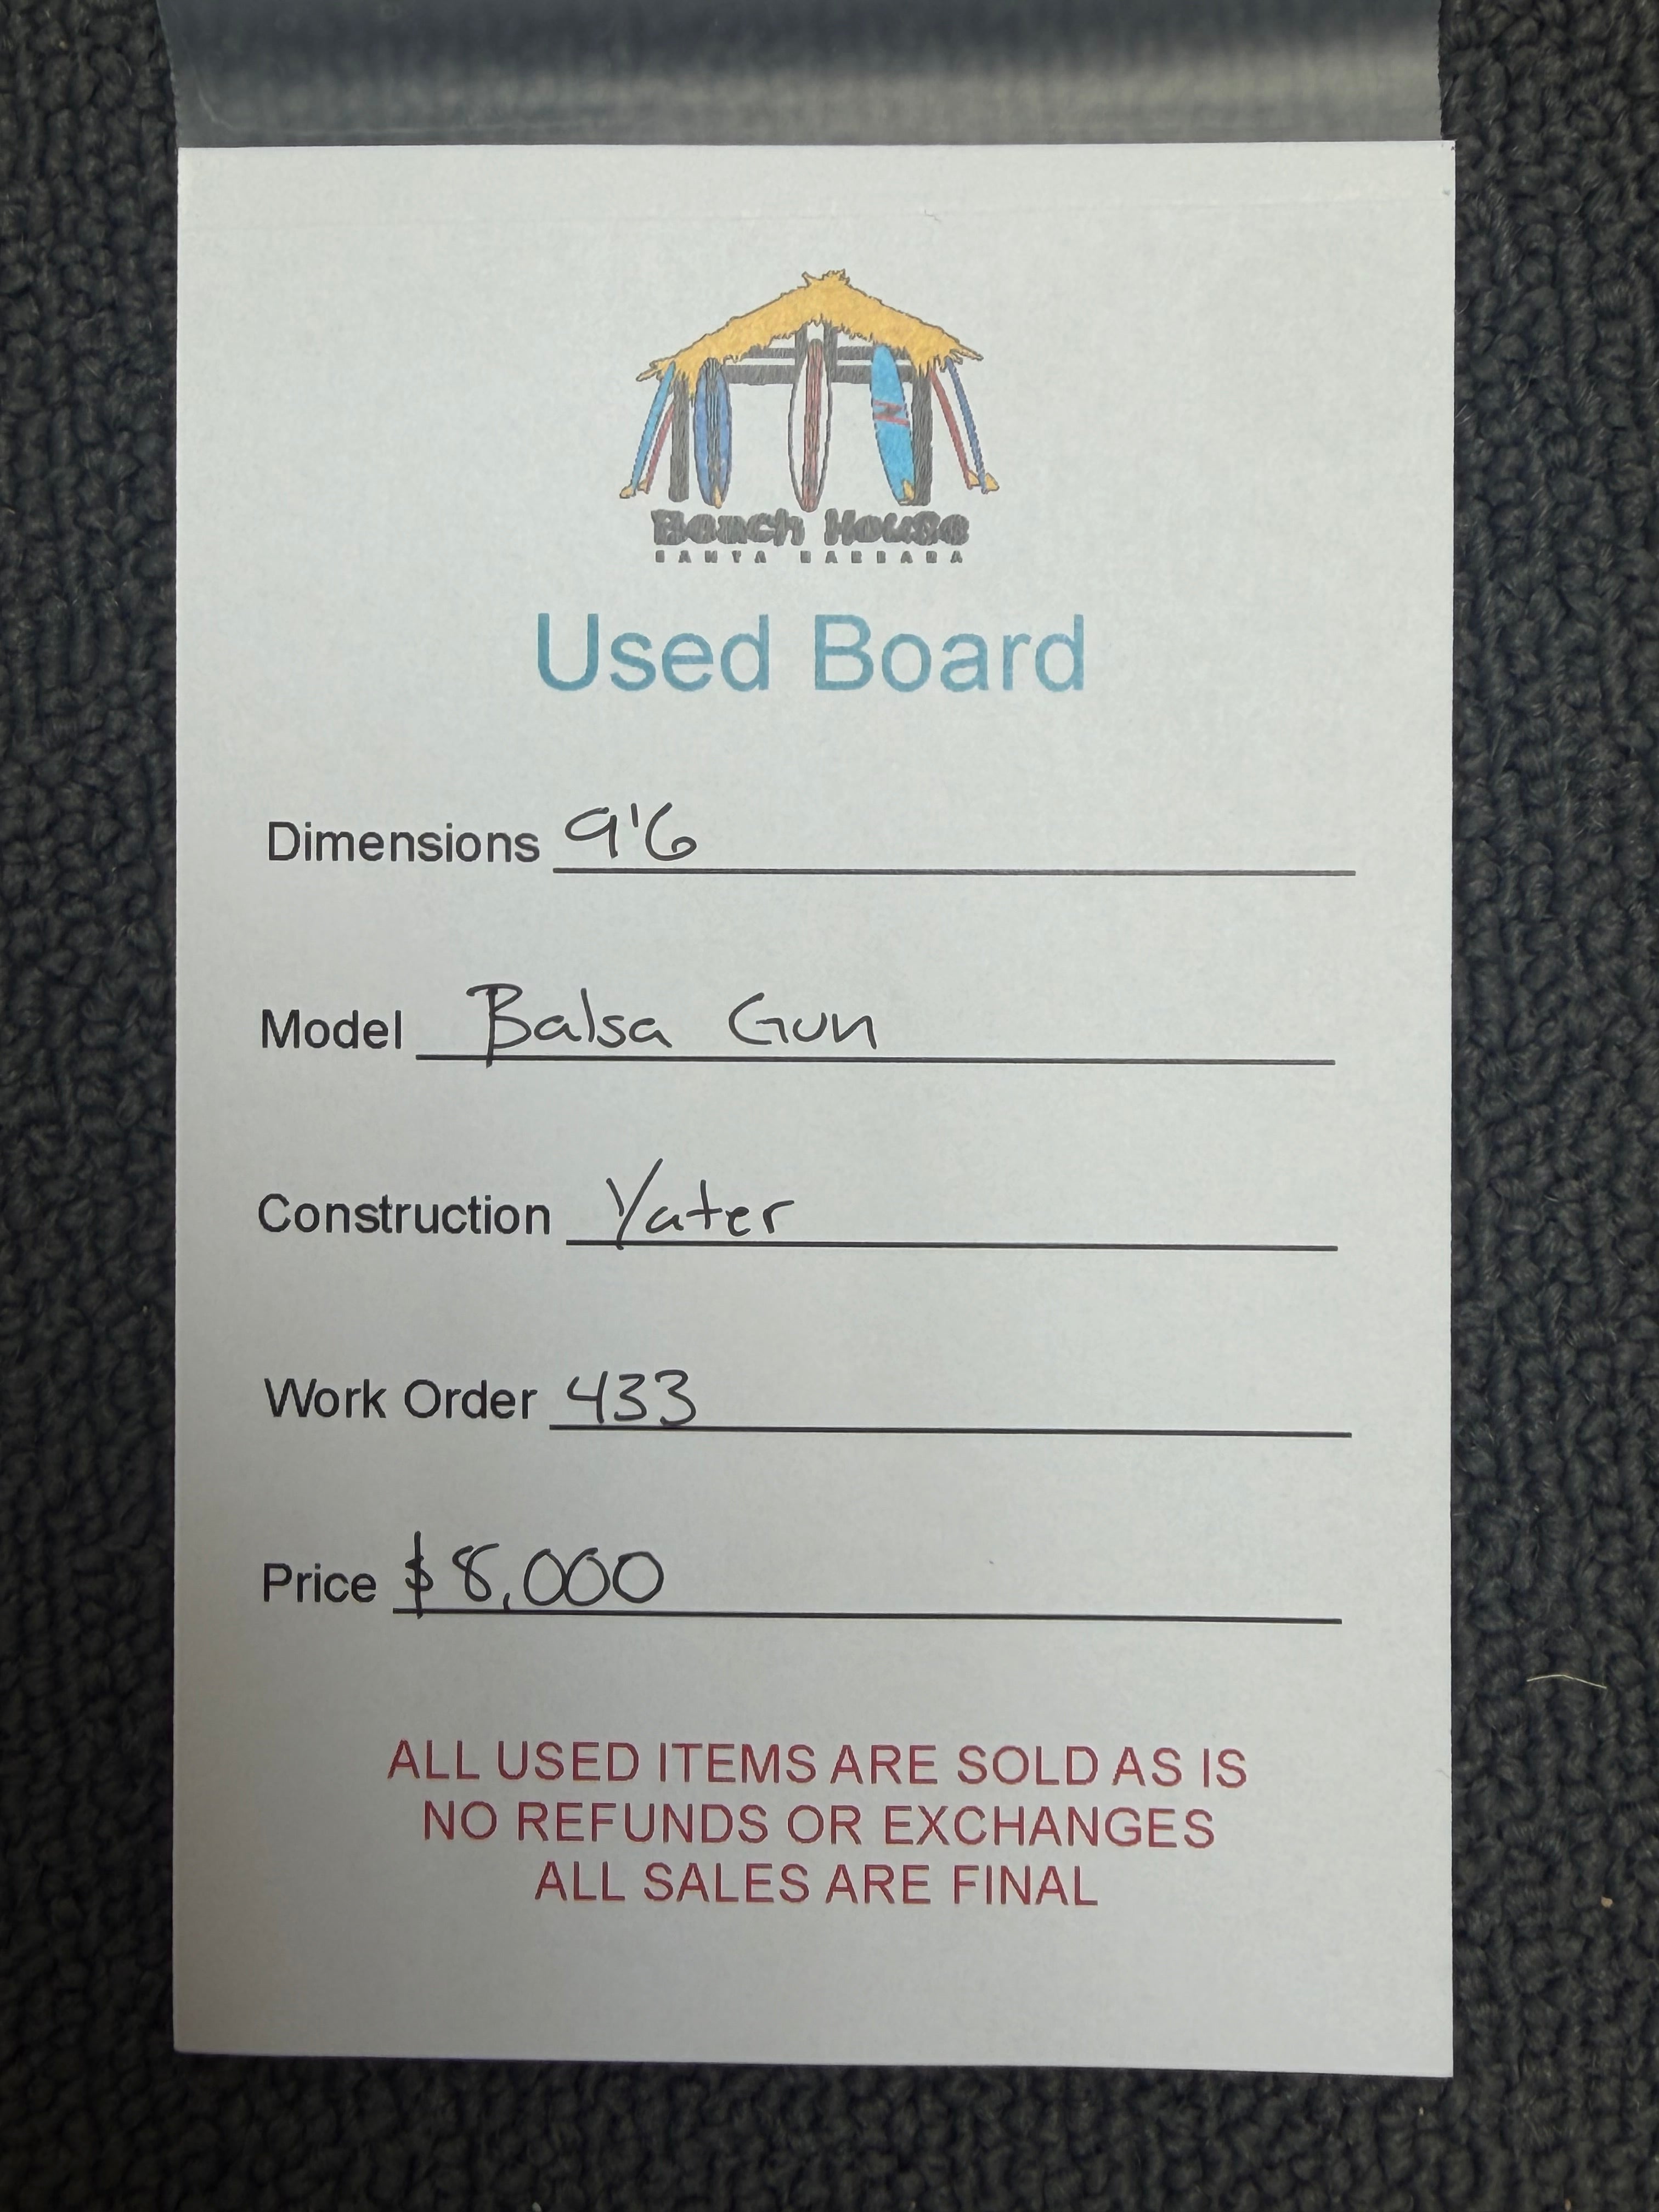 Beach House
SANTA BARBARA
Used Board
Dimensions 9'6
Model Balsa Gun
Construction Yater
Work Order 433
Price $8,000
ALL USED ITEMS ARE SOLD AS IS
NO REFUNDS OR EXCHANGES
ALL SALES ARE FINAL